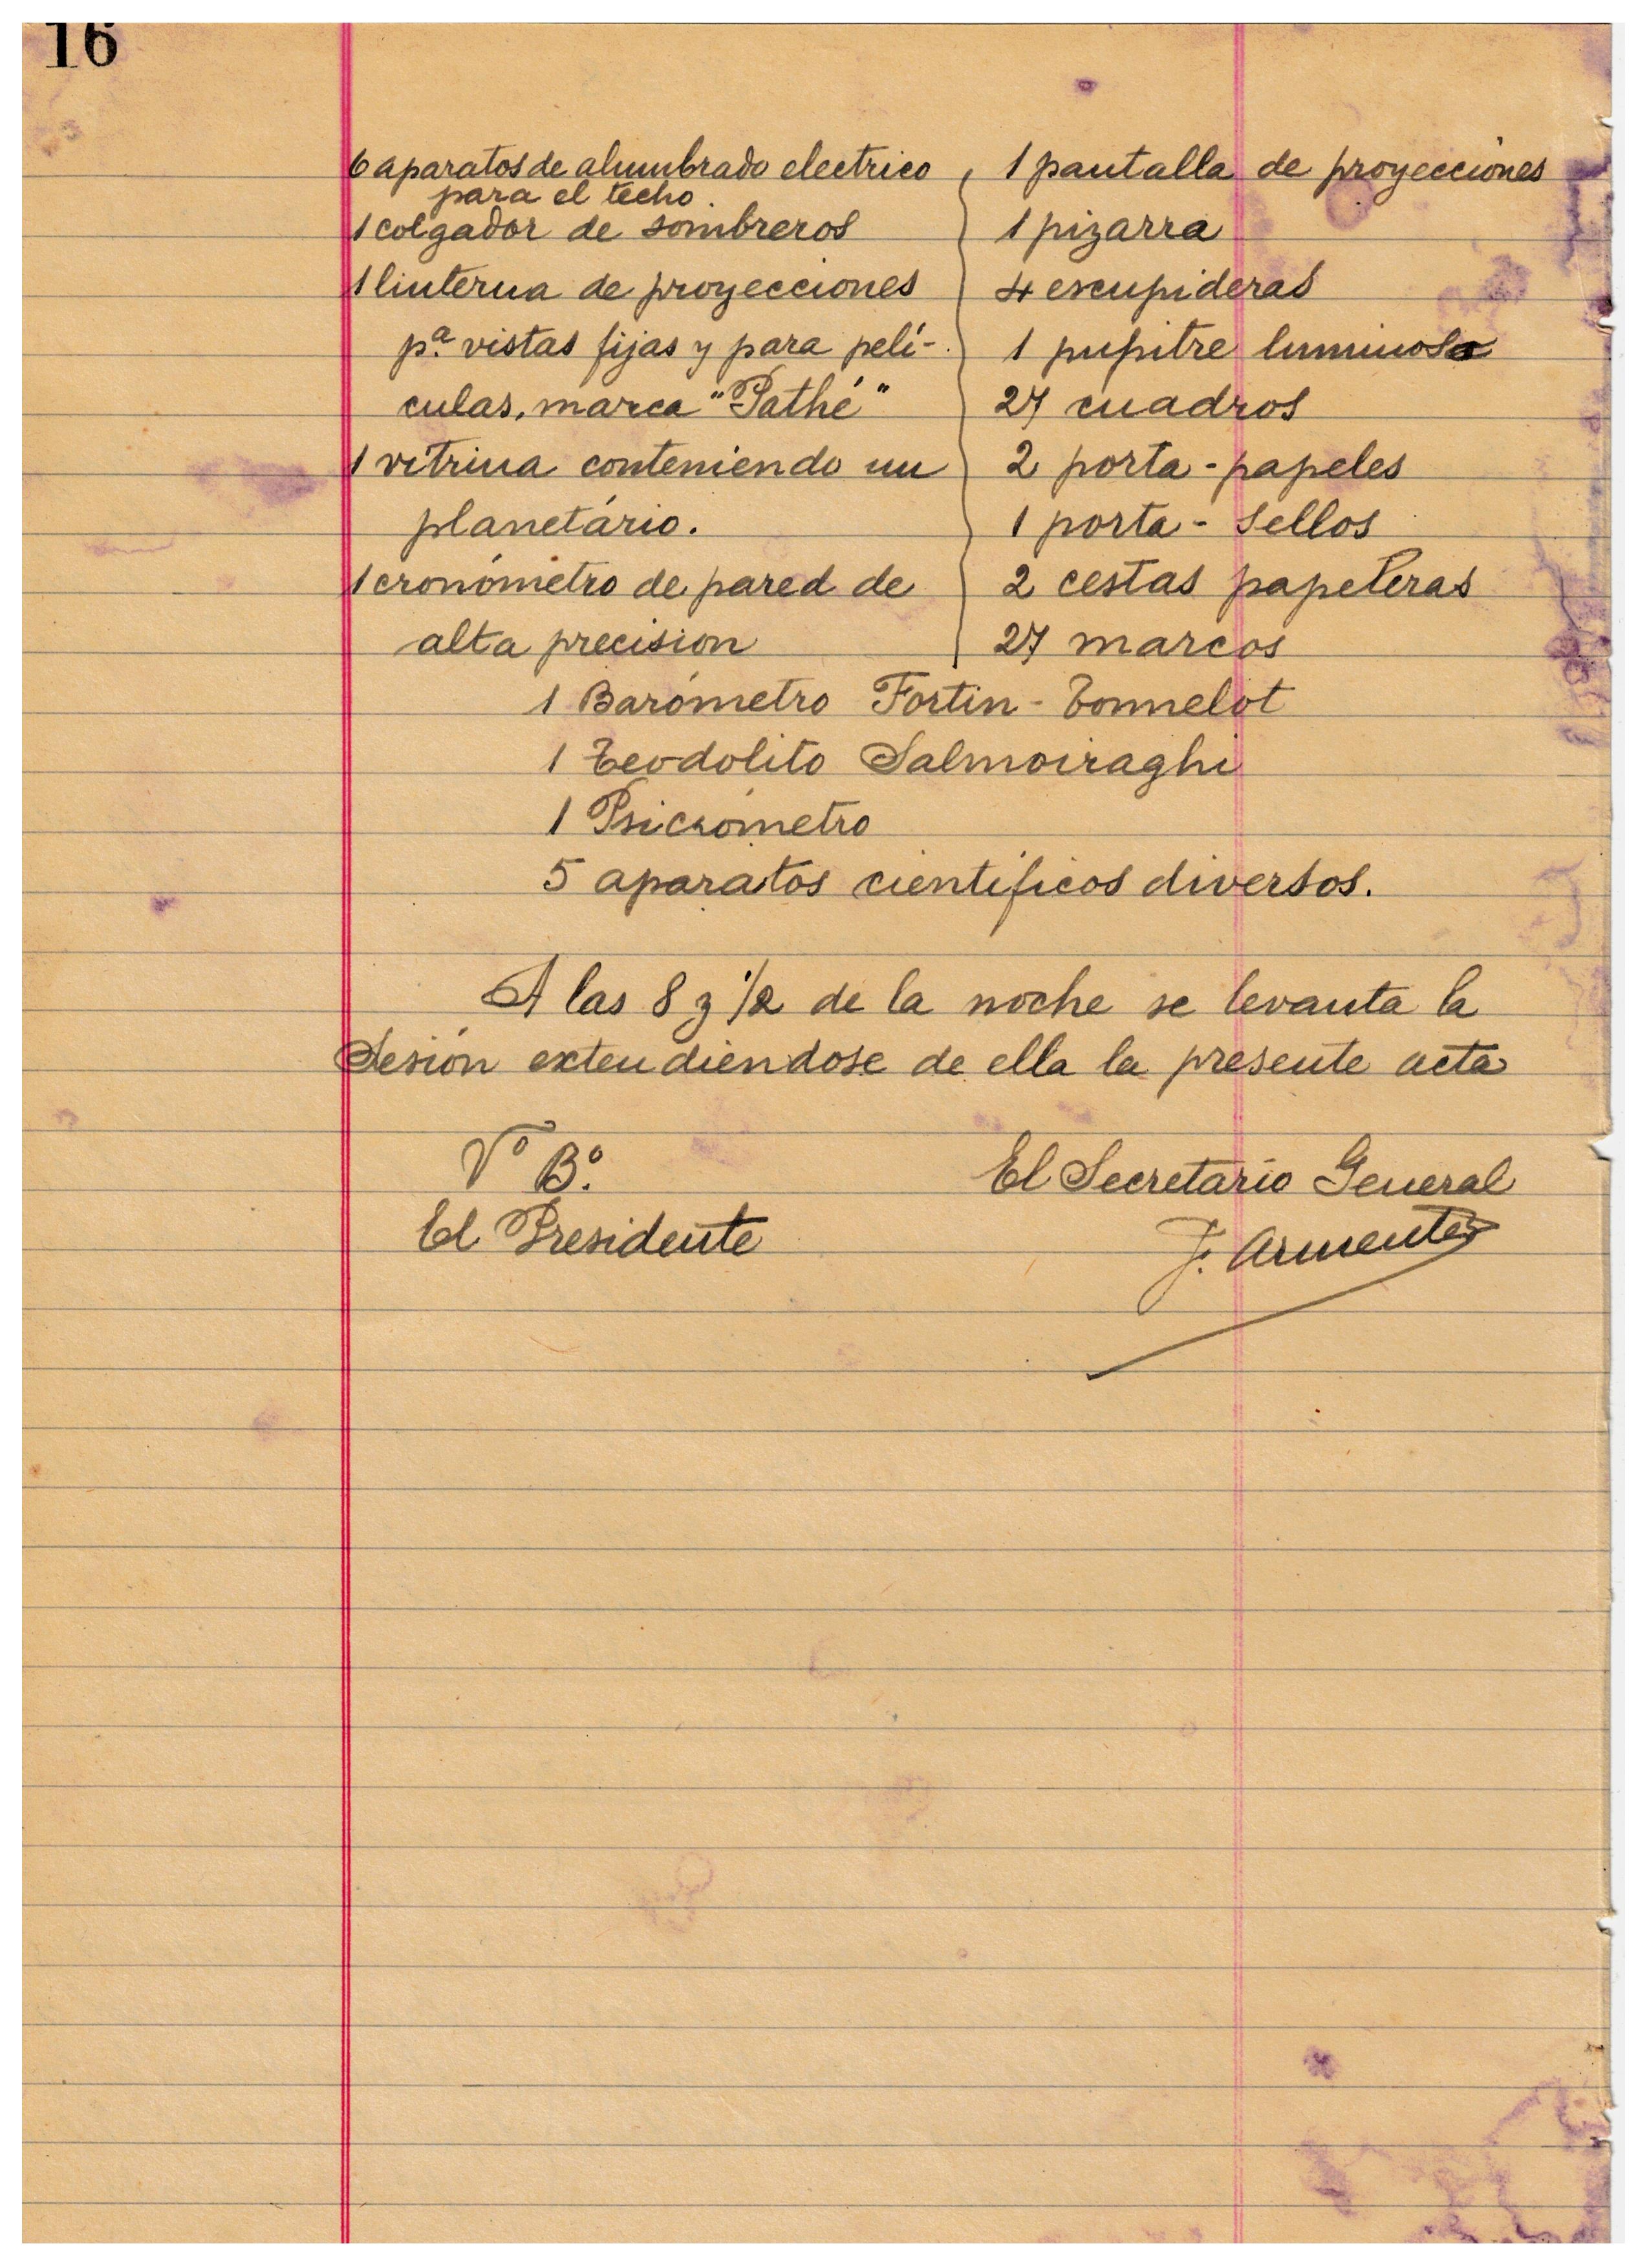 16
6 aparatos de alumbrado electrico
para el techo.
1 colgador de sombreros
1 linterna de proyecciones
pª vistas fijas y para pelí-
culas, marca "Pathé"
1 vitrina conteniendo un
planetário.
1 cronómetro de pared de
alta precision
1 pantalla de proyecciones
1 pizarra
4 escupideras
1 pupitre luminoso
27 cuadros
2 porta-papeles
1 porta-sellos
2 cestas papeleras
27 marcos
1 Barómetro Fortin-Tonnelot
1 Teodolito Salmoiraghi
1 Psicrómetro
5 aparatos científicos diversos.
A las 8 y 1/2 de la noche se levanta la
Sesión extendiéndose de ella la presente acta
Vº Bº.
El Presidente
El Secretario General
J. Armenter